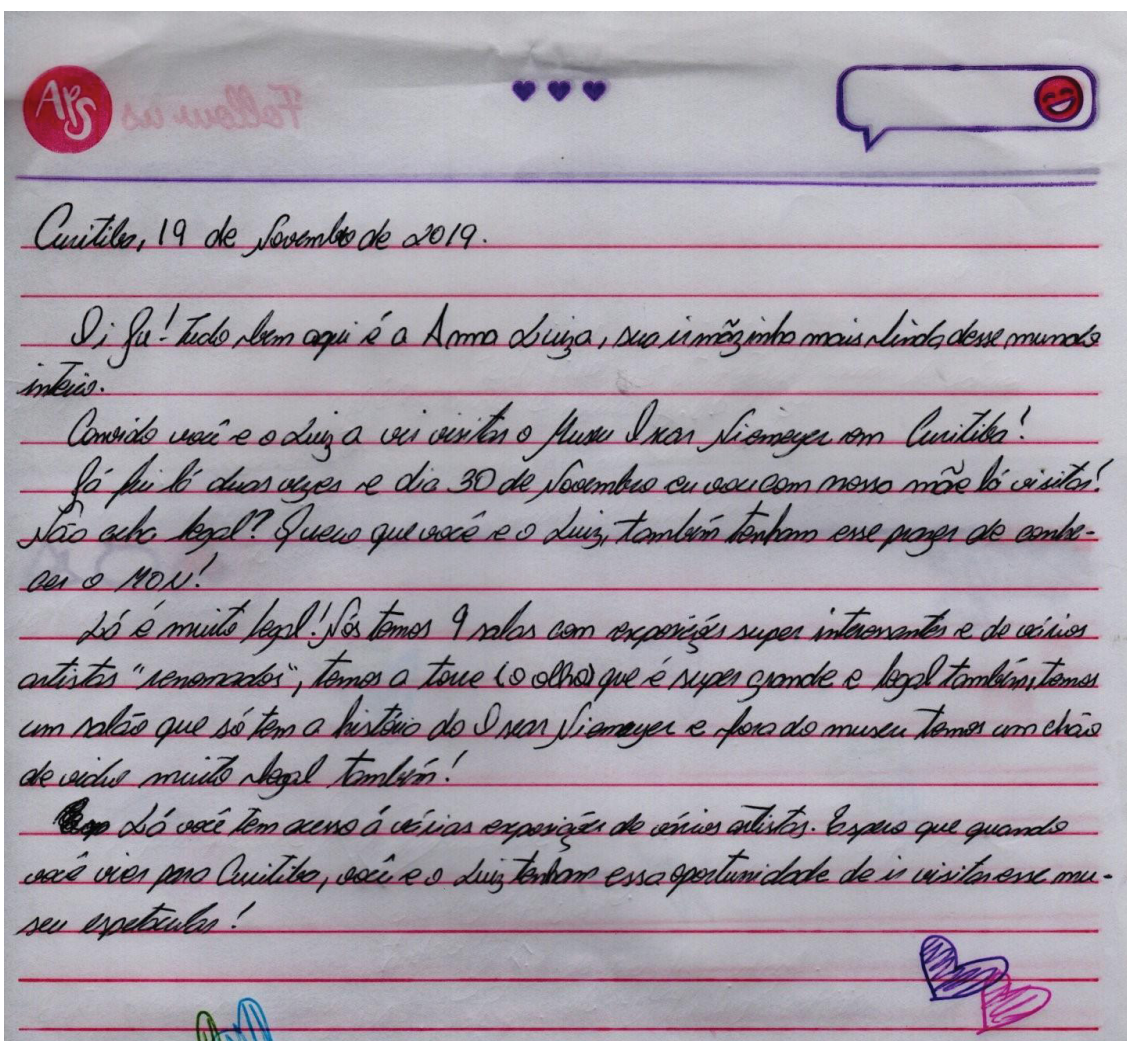 APS
Follow us
Curitiba, 19 de Novembro de 2019.
Oi Ju! Tudo bem aqui é a Anna Luiza, sua irmãzinha mais linda desse mundo
inteiro.
Convido você e o Luiz a vir visitar o Museu Oscar Niemeyer em Curitiba!
Já fui lá duas vezes e dia 30 de Novembro eu vou com nossa mãe lá visitar!
Não acha legal? Quero que você e o Luiz, também tenham esse prazer de conhe-
cer o MON!
Lá é muito legal! Nós temos 9 salas com exposições super interessantes e de vários
artistas "renomados", temos a torre (o olho) que é super grande e legal também, temos
um salão que só tem a história do Oscar Niemeyer e fora do museu temos um chão
de vidro muito legal também!
Lá você tem acesso á várias exposições de vários artistas. Espero que quando
você vier para Curitiba, você e o Luiz tenham essa oportunidade de ir visitar esse mu-
seu espetacular!